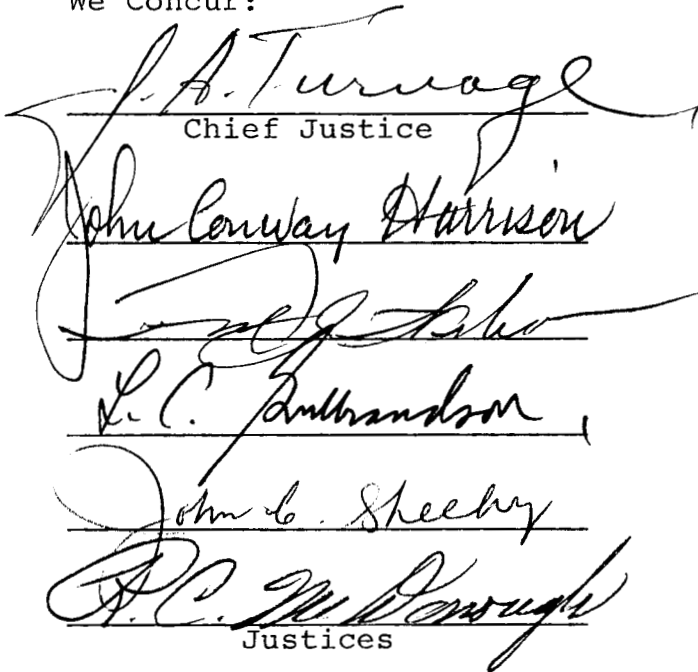 We Concur:
J. A. Turnage
Chief Justice
John Conway Harrison
L. C. Gulbrandson
John C. Sheehy
R. C. McDonough
Justices